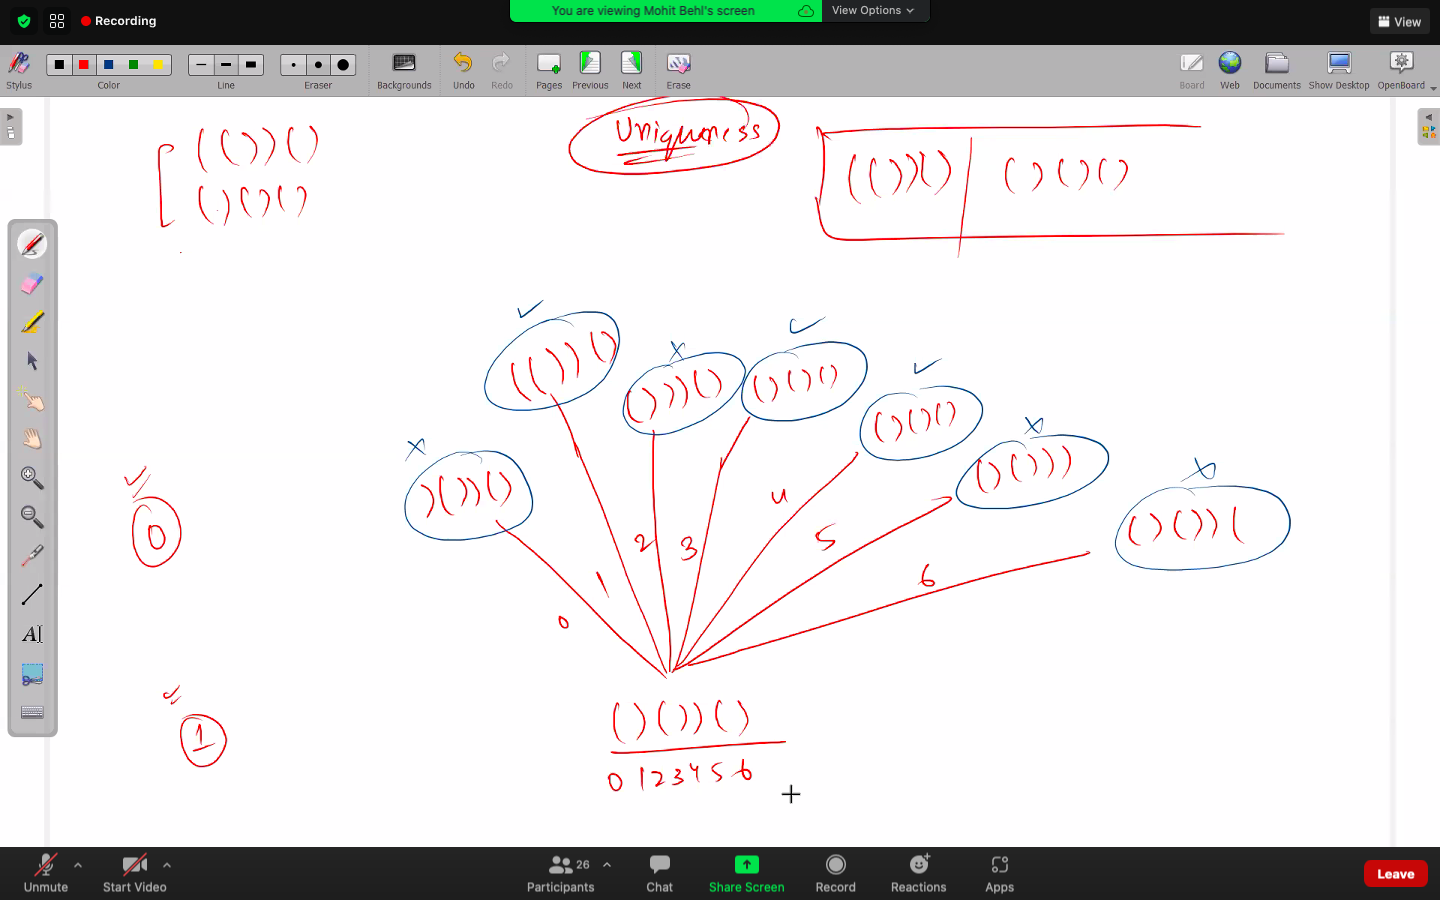 Recording
You are viewing Mohit Behl's screen
View Options
View
Stylus Color Line Eraser Backgrounds Undo Redo Pages Previous Next Erase Board Web Documents Show Desktop OpenBoard
(())()
()()()
Uniqueness
(())() ()()()
(())()
()))()
()()()
()()()
()()))
)())()
()())(
0
0 1 2 3 4 5 6
1
()())()
0 1 2 3 4 5 6
A
Unmute Start Video Participants 26 Chat Share Screen Record Reactions Apps Leave